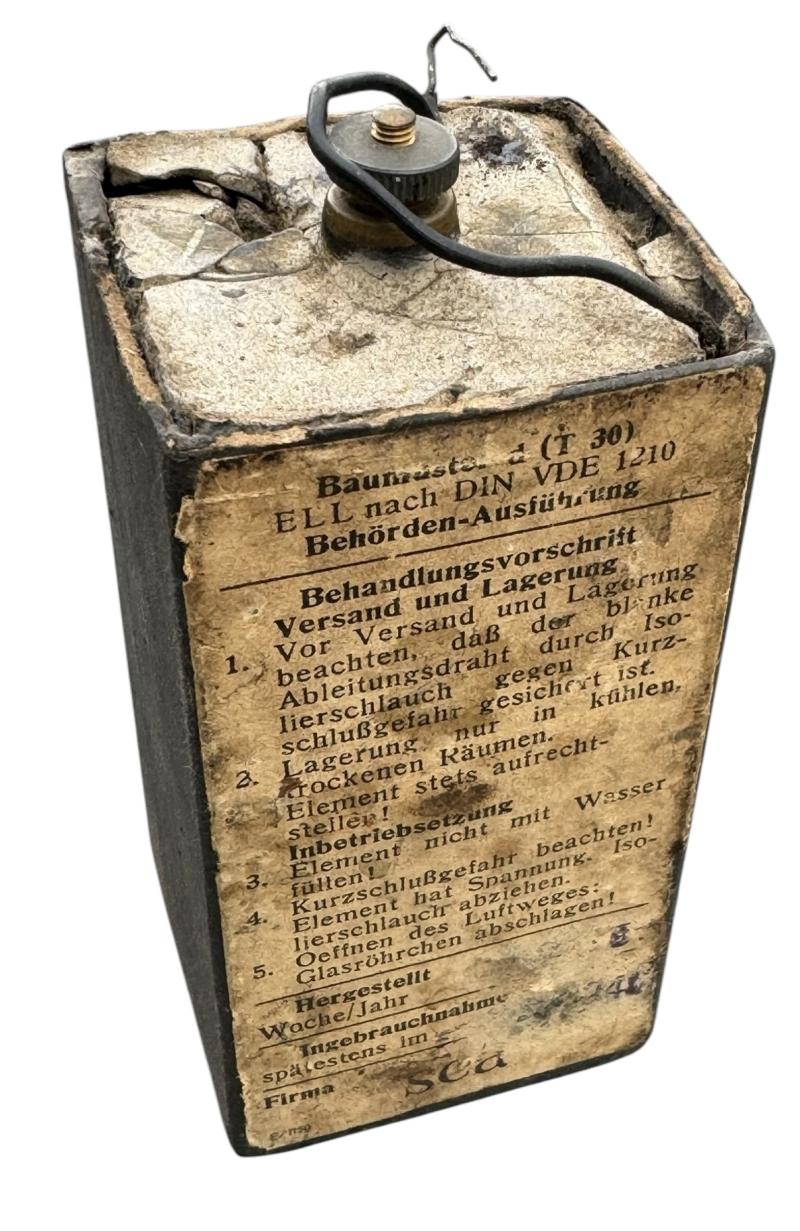 (T 30)
ELL nach DIN VDE 1210
Behörden-Ausführung
Behandlungsvorschrift
Versand und Lagerung
1. Vor Versand und Lagerung
beachten, daß der blanke
Ableitungsdraht durch Iso-
lierschlauch gegen Kurz-
schlußgefahr gesichert ist.
2. Lagerung nur in kühlen,
trockenen Räumen.
Element stets aufrecht-
stellen!
Inbetriebsetzung
3. Element nicht mit Wasser
füllen!
4. Kurzschlußgefahr beachten!
Element hat Spannung. Iso-
lierschlauch abziehen.
5. Oeffnen des Luftweges:
Glasröhrchen abschlagen!
Hergestellt
Woche/Jahr
Ingebrauchnahme
spätestens im
Firma